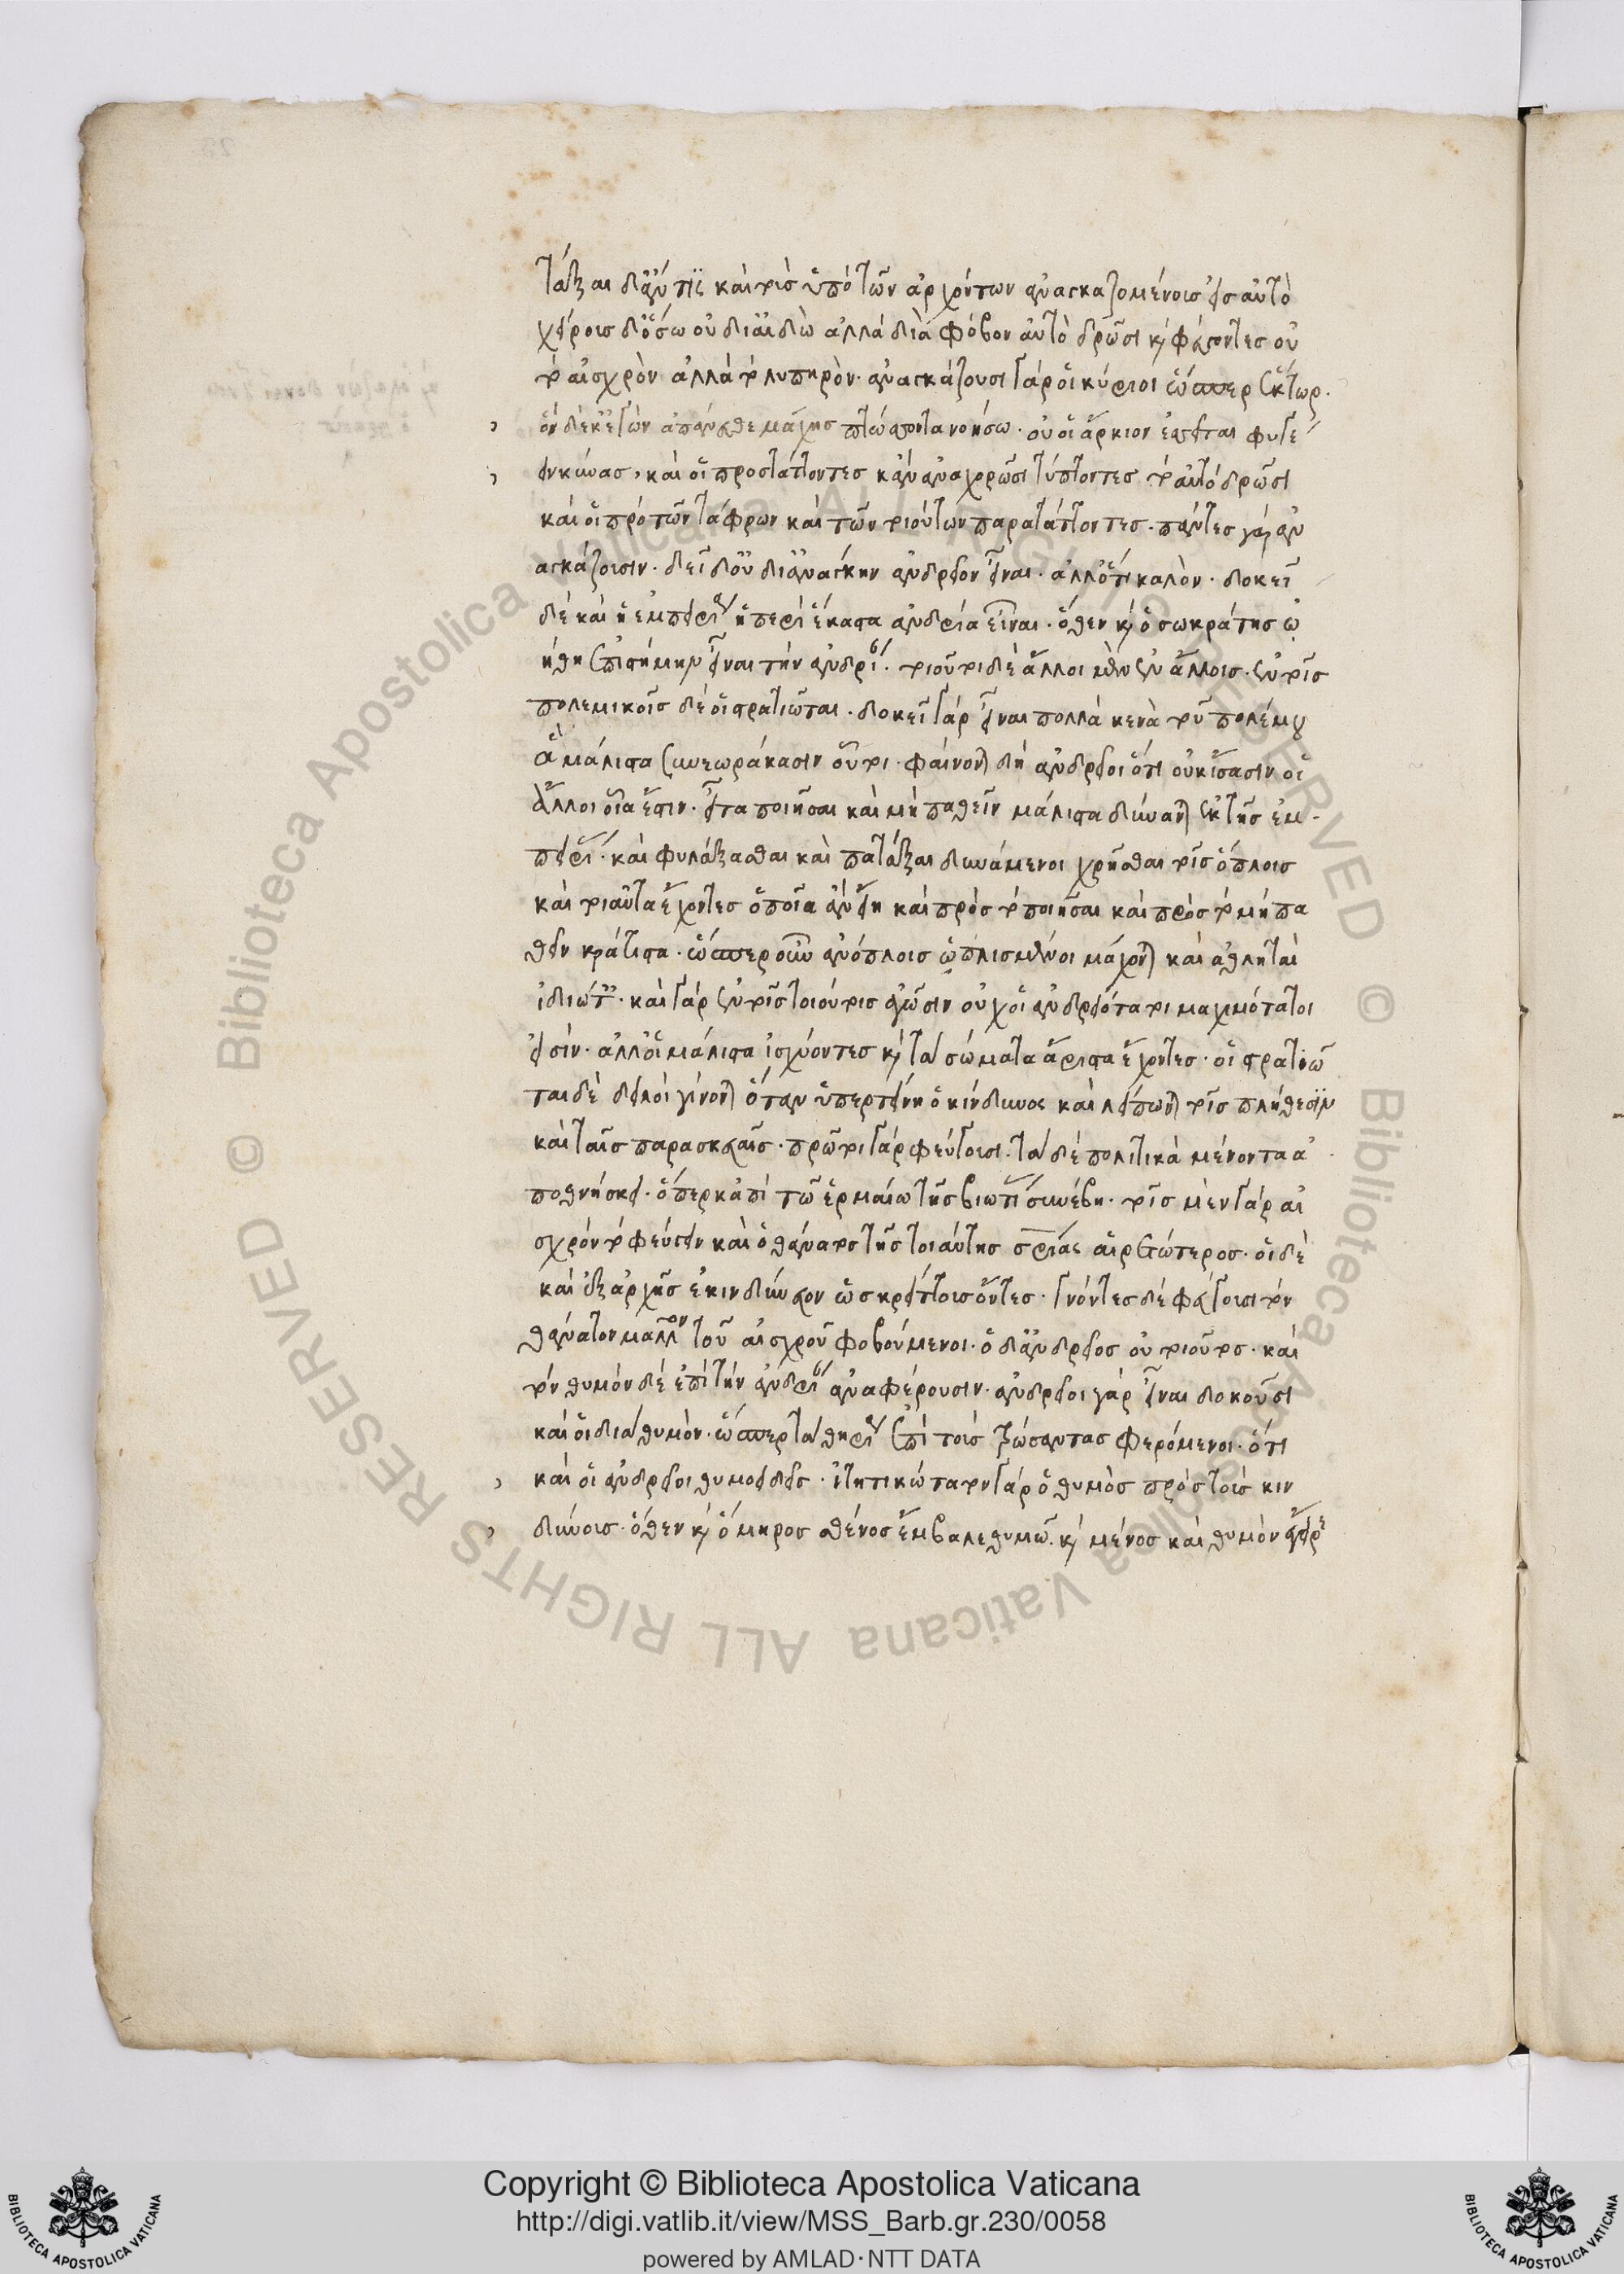 τάξαι δ' ἄν τις καὶ τοὺς ὑπὸ τῶν ἀρχόντων ἀναγκαζομένους εἰς αὐτὸ
χείρους δ' ὅσω οὐ δι' αἰδὼ ἀλλὰ διὰ φόβον αὐτὸ δρῶσι κ φεύγοντες οὐ
τὸ αἰσχρὸν ἀλλὰ τὸ λυπηρὸν· ἀναγκάζουσι γὰρ οἱ κύριοι ὥσπερ ἕκτωρ·
ὃν δέ κ' ἐγὼν ἀπάνευθε μάχης πτώσσοντα νοήσω· οὔ οἱ ἄρκιον ἐσσεῖται φυγέ
ειν κύνας, καὶ οἱ προστάττοντες κἂν ἀναχωρῶσι τύπτοντες τὸ αὐτὸ δρῶσι
καὶ οἱ πρὸ τῶν τάφρων καὶ τῶν τοιούτων παρατάττοντες· πάντες γὰρ ἀν
αγκάζουσιν· δεῖ δ' οὐ δι' ἀνάγκην ἀνδρεῖον εἶναι· ἀλλ' ὅτι καλὸν· δοκεῖ
δὲ καὶ ἡ ἐμπειρία ἡ περὶ ἕκαστα ἀνδρία εἶναι· ὅθεν κ ὁ σωκράτης ὠ
ήθη ἐπιστήμην εἶναι τὴν ἀνδρίαν· τοιοῦτοι δὲ ἄλλοι μὲν ἐν ἄλλοις· ἐν τοῖς
πολεμικοῖς δὲ οἱ στρατιῶται· δοκεῖ γὰρ εἶναι πολλὰ κενὰ τοῦ πολέμου
ἃ μάλιστα συνεωράκασιν οὗτοι· φαίνονται δὴ ἀνδρεῖοι ὅτι οὐκ ἴσασιν οἱ
ἄλλοι οἷα ἔστιν· εἶτα ποιῆσαι καὶ μὴ παθεῖν μάλιστα δύνανται ἐκ τῆς ἐμ
πειρίας· καὶ φυλάξασθαι καὶ πατάξαι δυνάμενοι χρῆσθαι τοῖς ὅπλοις
καὶ τοιαῦτα ἔχοντες ὁποῖα ἂν εἴη καὶ πρὸς τὸ ποιῆσαι καὶ πρὸς τὸ μὴ πα
θεῖν κράτιστα· ὥσπερ οὖν ἀνόπλοις ὡπλισμένοι μάχονται καὶ ἀθληταὶ
ἰδιώταις· καὶ γὰρ ἐν τοῖς τοιούτοις ἀγῶσιν οὐχ οἱ ἀνδρειότατοι μαχιμώτατοι
εἰσίν· ἀλλ' οἱ μάλιστα ἰσχύοντες κ τὰ σώματα ἄριστα ἔχοντες· οἱ στρατιῶ
ται δὲ δειλοὶ γίνονται ὅταν ὑπερτείνη ὁ κίνδυνος καὶ λείπωνται τοῖς πλήθεσιν
καὶ ταῖς παρασκευαῖς· πρῶτοι γὰρ φεύγουσι· τὰ δὲ πολιτικὰ μένοντα ἀ
ποθνήσκει· ὅπερ κἀπὶ τῶ ἑρμαίω τῆς βιωτί συνέβη· τοῖς μὲν γὰρ αἰ
σχρὸν τὸ φεύγειν καὶ ὁ θάνατος τῆς τοιαύτης σωτηρίας αἱρετώτερος· οἱ δὲ
καὶ ἐξ ἀρχῆς ἐκινδύνευον ὡς κρείττους ὄντες· γνόντες δὲ φεύγουσι τὸν
θάνατον μᾶλλον τοῦ αἰσχροῦ φοβούμενοι· ὁ δ' ἀνδρεῖος οὐ τοιοῦτος· καὶ
τὸν θυμὸν δὲ ἐπὶ τὴν ἀνδρίαν ἀναφέρουσιν· ἀνδρεῖοι γὰρ εἶναι δοκοῦσι
καὶ οἱ διὰ θυμὸν· ὥσπερ τὰ θηρία ἐπὶ τοὺς τρώσαντας φερόμενοι· ὅτι
καὶ οἱ ἀνδρεῖοι θυμοειδεῖς· ἰτητικώτατον γὰρ ὁ θυμὸς πρὸς τοὺς κιν
δύνους· ὅθεν κ ὅμηρος σθένος ἔμβαλε θυμῶ· κ μένος καὶ θυμὸν ἔγειρε
Copyright © Biblioteca Apostolica Vaticana
http://digi.vatlib.it/view/MSS_Barb.gr.230/0058
powered by AMLAD·NTT DATA
BIBLIOTECA APOSTOLICA VATICANA
BIBLIOTECA APOSTOLICA VATICANA